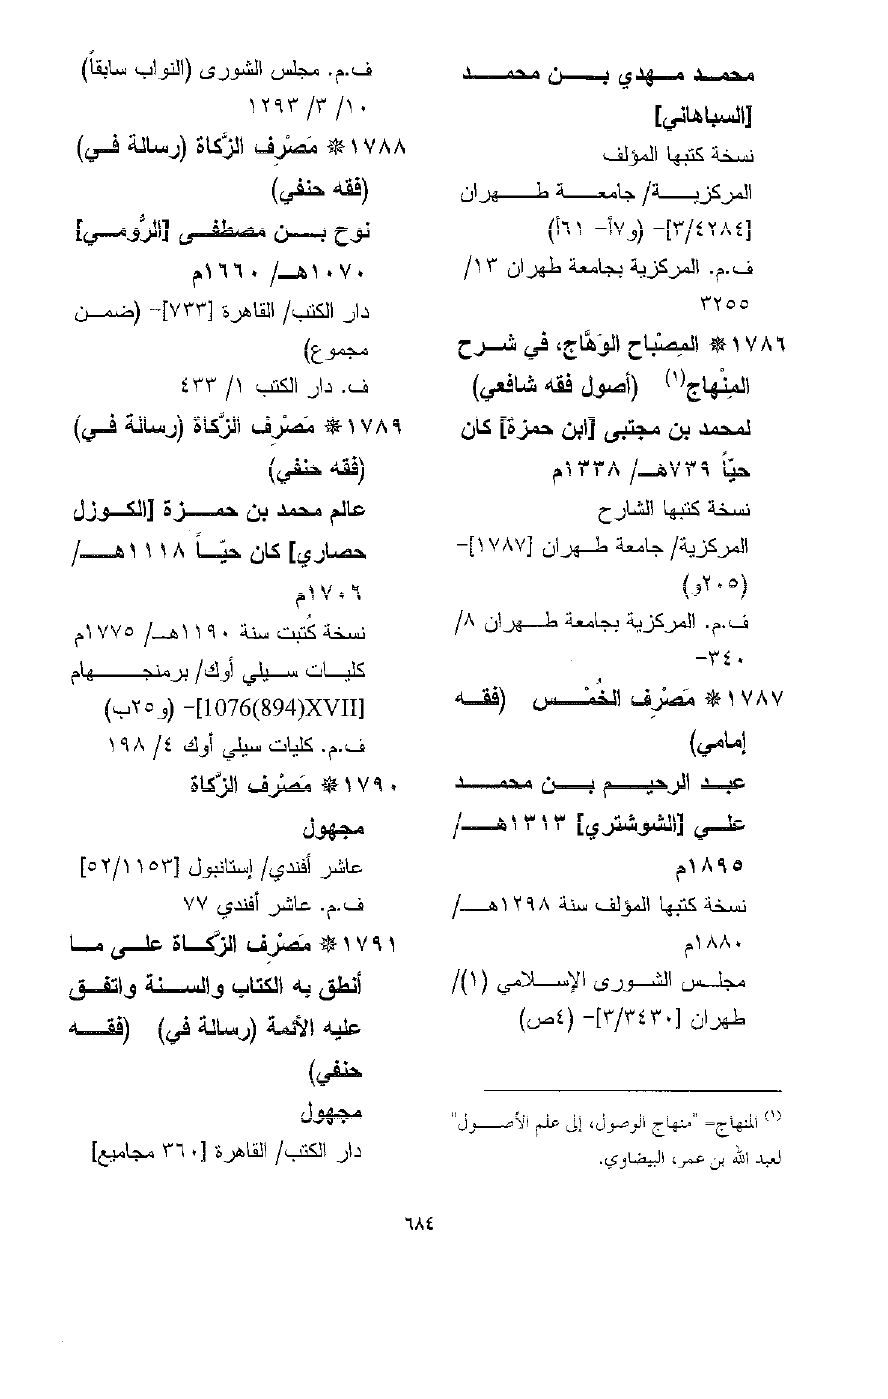 محمد مهدي بن محمد
[السباهاني]
نسخة كتبها المؤلف
المركزية/ جامعة طهران
[٣/٤٢٨٤]- (و٧أ- ٦١أ)
ف.م. المركزية بجامعة طهران ١٣/
٣٢٥٥
١٧٨٦* المِصْباح الوَهَّاج، في شرح
المِنْهاج(١) (أصول فقه شافعي)
لمحمد بن مجتبى [ابن حمزة] كان
حيّاً ٧٣٩هـ/ ١٣٣٨م
نسخة كتبها الشارح
المركزية/ جامعة طهران [١٧٨٧]-
(٢٠٥و)
ف.م. المركزية بجامعة طهران ٨/
٣٤٠-
١٧٨٧* مَصْرِف الخُمْس (فقه
إمامي)
عبد الرحيم بن محمد
علي [الشوشتري] ١٣١٣هـ/
١٨٩٥م
نسخة كتبها المؤلف سنة ١٢٩٨هـ/
١٨٨٠م
مجلس الشورى الإسلامي (١)/
طهران [٣/٣٤٣٠]- (٤ص)
(١) المنهاج= "منهاج الوصول، إلى علم الأصول"
لعبد الله بن عمر، البيضاوي.
ف.م. مجلس الشورى (النواب سابقاً)
١٠/ ٣/ ١٢٩٣
١٧٨٨* مَصْرِف الزَّكاة (رسالة في)
(فقه حنفي)
نوح بن مصطفى [الرُّومي]
١٠٧٠هـ/ ١٦٦٠م
دار الكتب/ القاهرة [٧٣٣]- (ضمن
مجموع)
ف. دار الكتب ١/ ٤٣٣
١٧٨٩* مَصْرِف الزَّكاة (رسالة في)
(فقه حنفي)
عالم محمد بن حمزة [الكوزل
حصاري] كان حيّاً ١١١٨هـ/
١٧٠٦م
نسخة كُتبت سنة ١١٩٠هـ/ ١٧٧٥م
كليات سيلي أوك/ برمنجهام
[1076(894)XVII]- (و٢٥ب)
ف.م. كليات سيلي أوك ٤/ ١٩٨
١٧٩٠* مَصْرِف الزَّكاة
مجهول
عاشر أفندي/ إستانبول [٥٢/١١٥٣]
ف.م. عاشر أفندي ٧٧
١٧٩١* مَصْرِف الزَّكاة على ما
أنطق به الكتاب والسنة واتفق
عليه الأئمة (رسالة في) (فقه
حنفي)
مجهول
دار الكتب/ القاهرة [٣٦٠ مجاميع]
٦٨٤